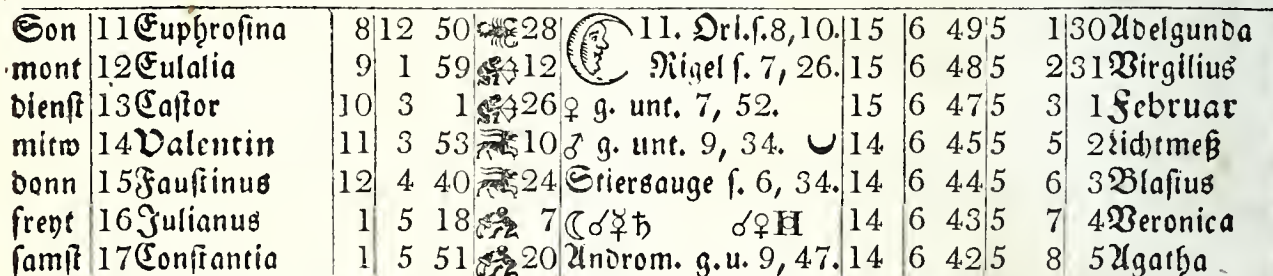 Son 11 Euphroſina 8 12 50 28 11. Ori.ſ.8,10. 15 6 49 5 1 30 Adelgunda
mont 12 Eulalia 9 1 59 12 Rigel ſ. 7, 26. 15 6 48 5 2 31 Virgilius
dienſt 13 Caſtor 10 3 1 26 ♀ g. unt. 7, 52. 15 6 47 5 3 1 Februar
mitw 14 Valentin 11 3 53 10 ♂ g. unt. 9, 34. 14 6 45 5 5 2 Lichtmeß
donn 15 Fauſtinus 12 4 40 24 Stiersauge ſ. 6, 34. 14 6 44 5 6 3 Blaſius
freyt 16 Julianus 1 5 18 7 ☾☌☿♄ ☌♀H 14 6 43 5 7 4 Veronica
ſamſt 17 Conſtantia 1 5 51 20 Androm. g.u. 9, 47. 14 6 42 5 8 5 Agatha